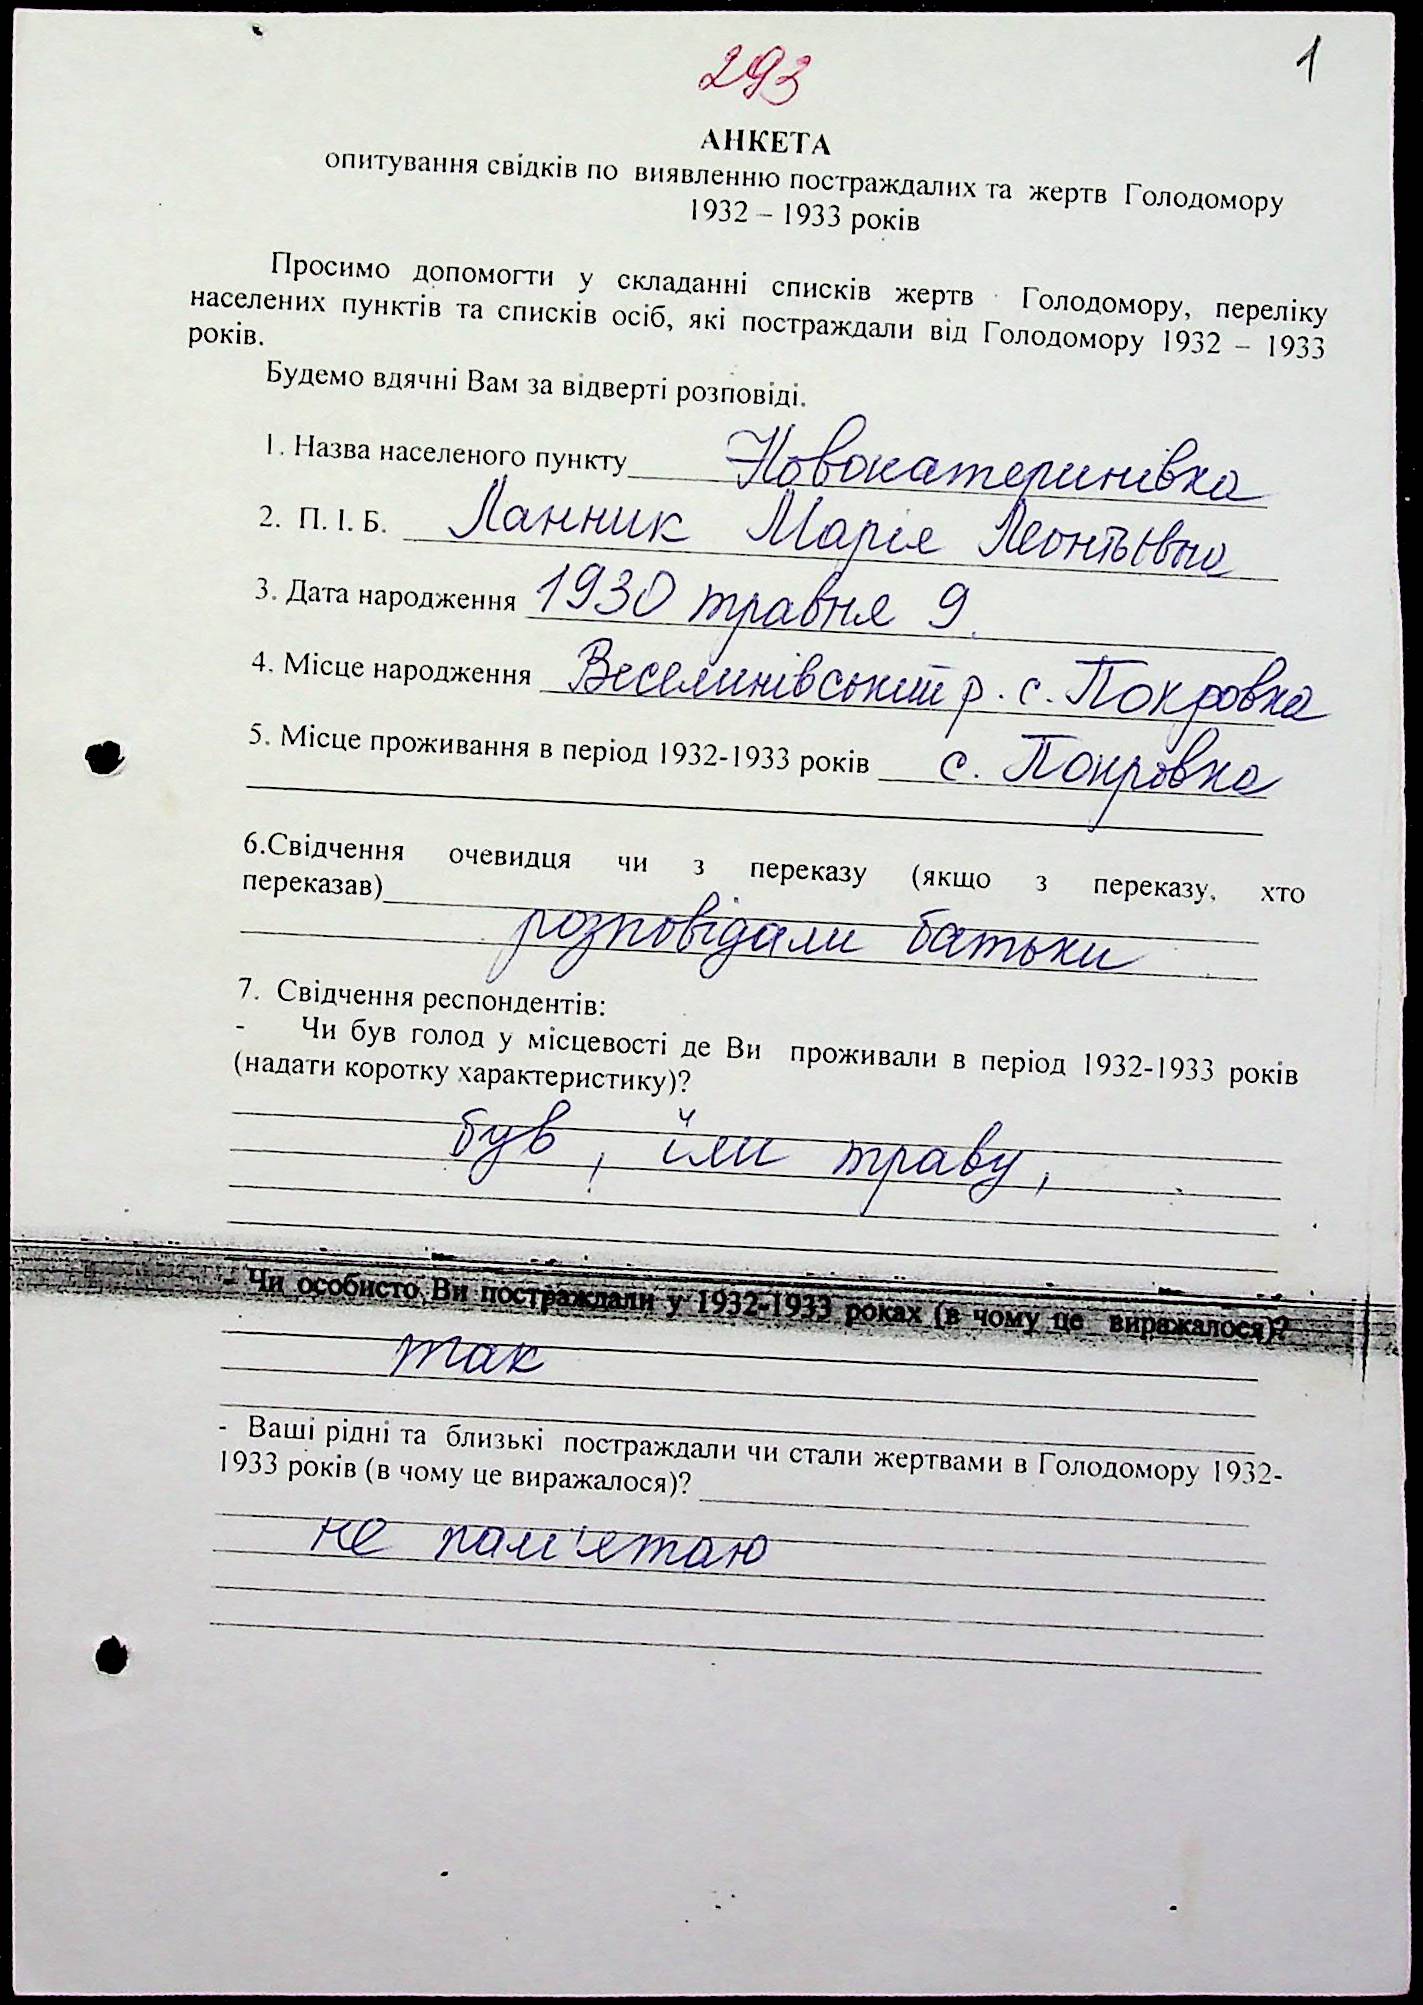 293
1
АНКЕТА
опитування свідків по виявленню постраждалих та жертв Голодомору
1932 – 1933 років
Просимо допомогти у складанні списків жертв Голодомору, переліку
населених пунктів та списків осіб, які постраждали від Голодомору 1932 – 1933
років.
Будемо вдячні Вам за відверті розповіді.
1. Назва населеного пункту Новокатеринівка
2. П. І. Б. Ланник Марія Леонтьївна
3. Дата народження 1930 травня 9.
4. Місце народження Веселинівський р. с. Покровка
5. Місце проживання в період 1932-1933 років с. Покровка
6.Свідчення очевидця чи з переказу (якщо з переказу, хто
переказав)
розповідали батьки
7. Свідчення респондентів:
- Чи був голод у місцевості де Ви проживали в період 1932-1933 років
(надати коротку характеристику)?
був, їли траву,
- Чи особисто Ви постраждали у 1932-1933 роках (в чому це виражалося)?
так
- Ваші рідні та близькі постраждали чи стали жертвами в Голодомору 1932-
1933 років (в чому це виражалося)?
не пам'ятаю